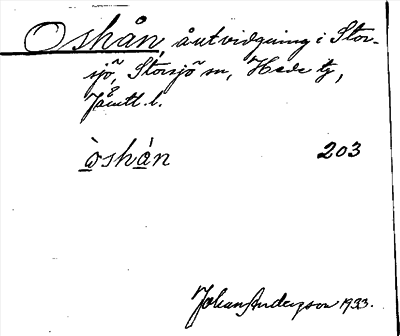 Oshån, åutvidgning i Stor-
sjö, Storsjö sn, Hede tg,
Jämtl. l.
òshàn 203
Johan Anderson 1933.